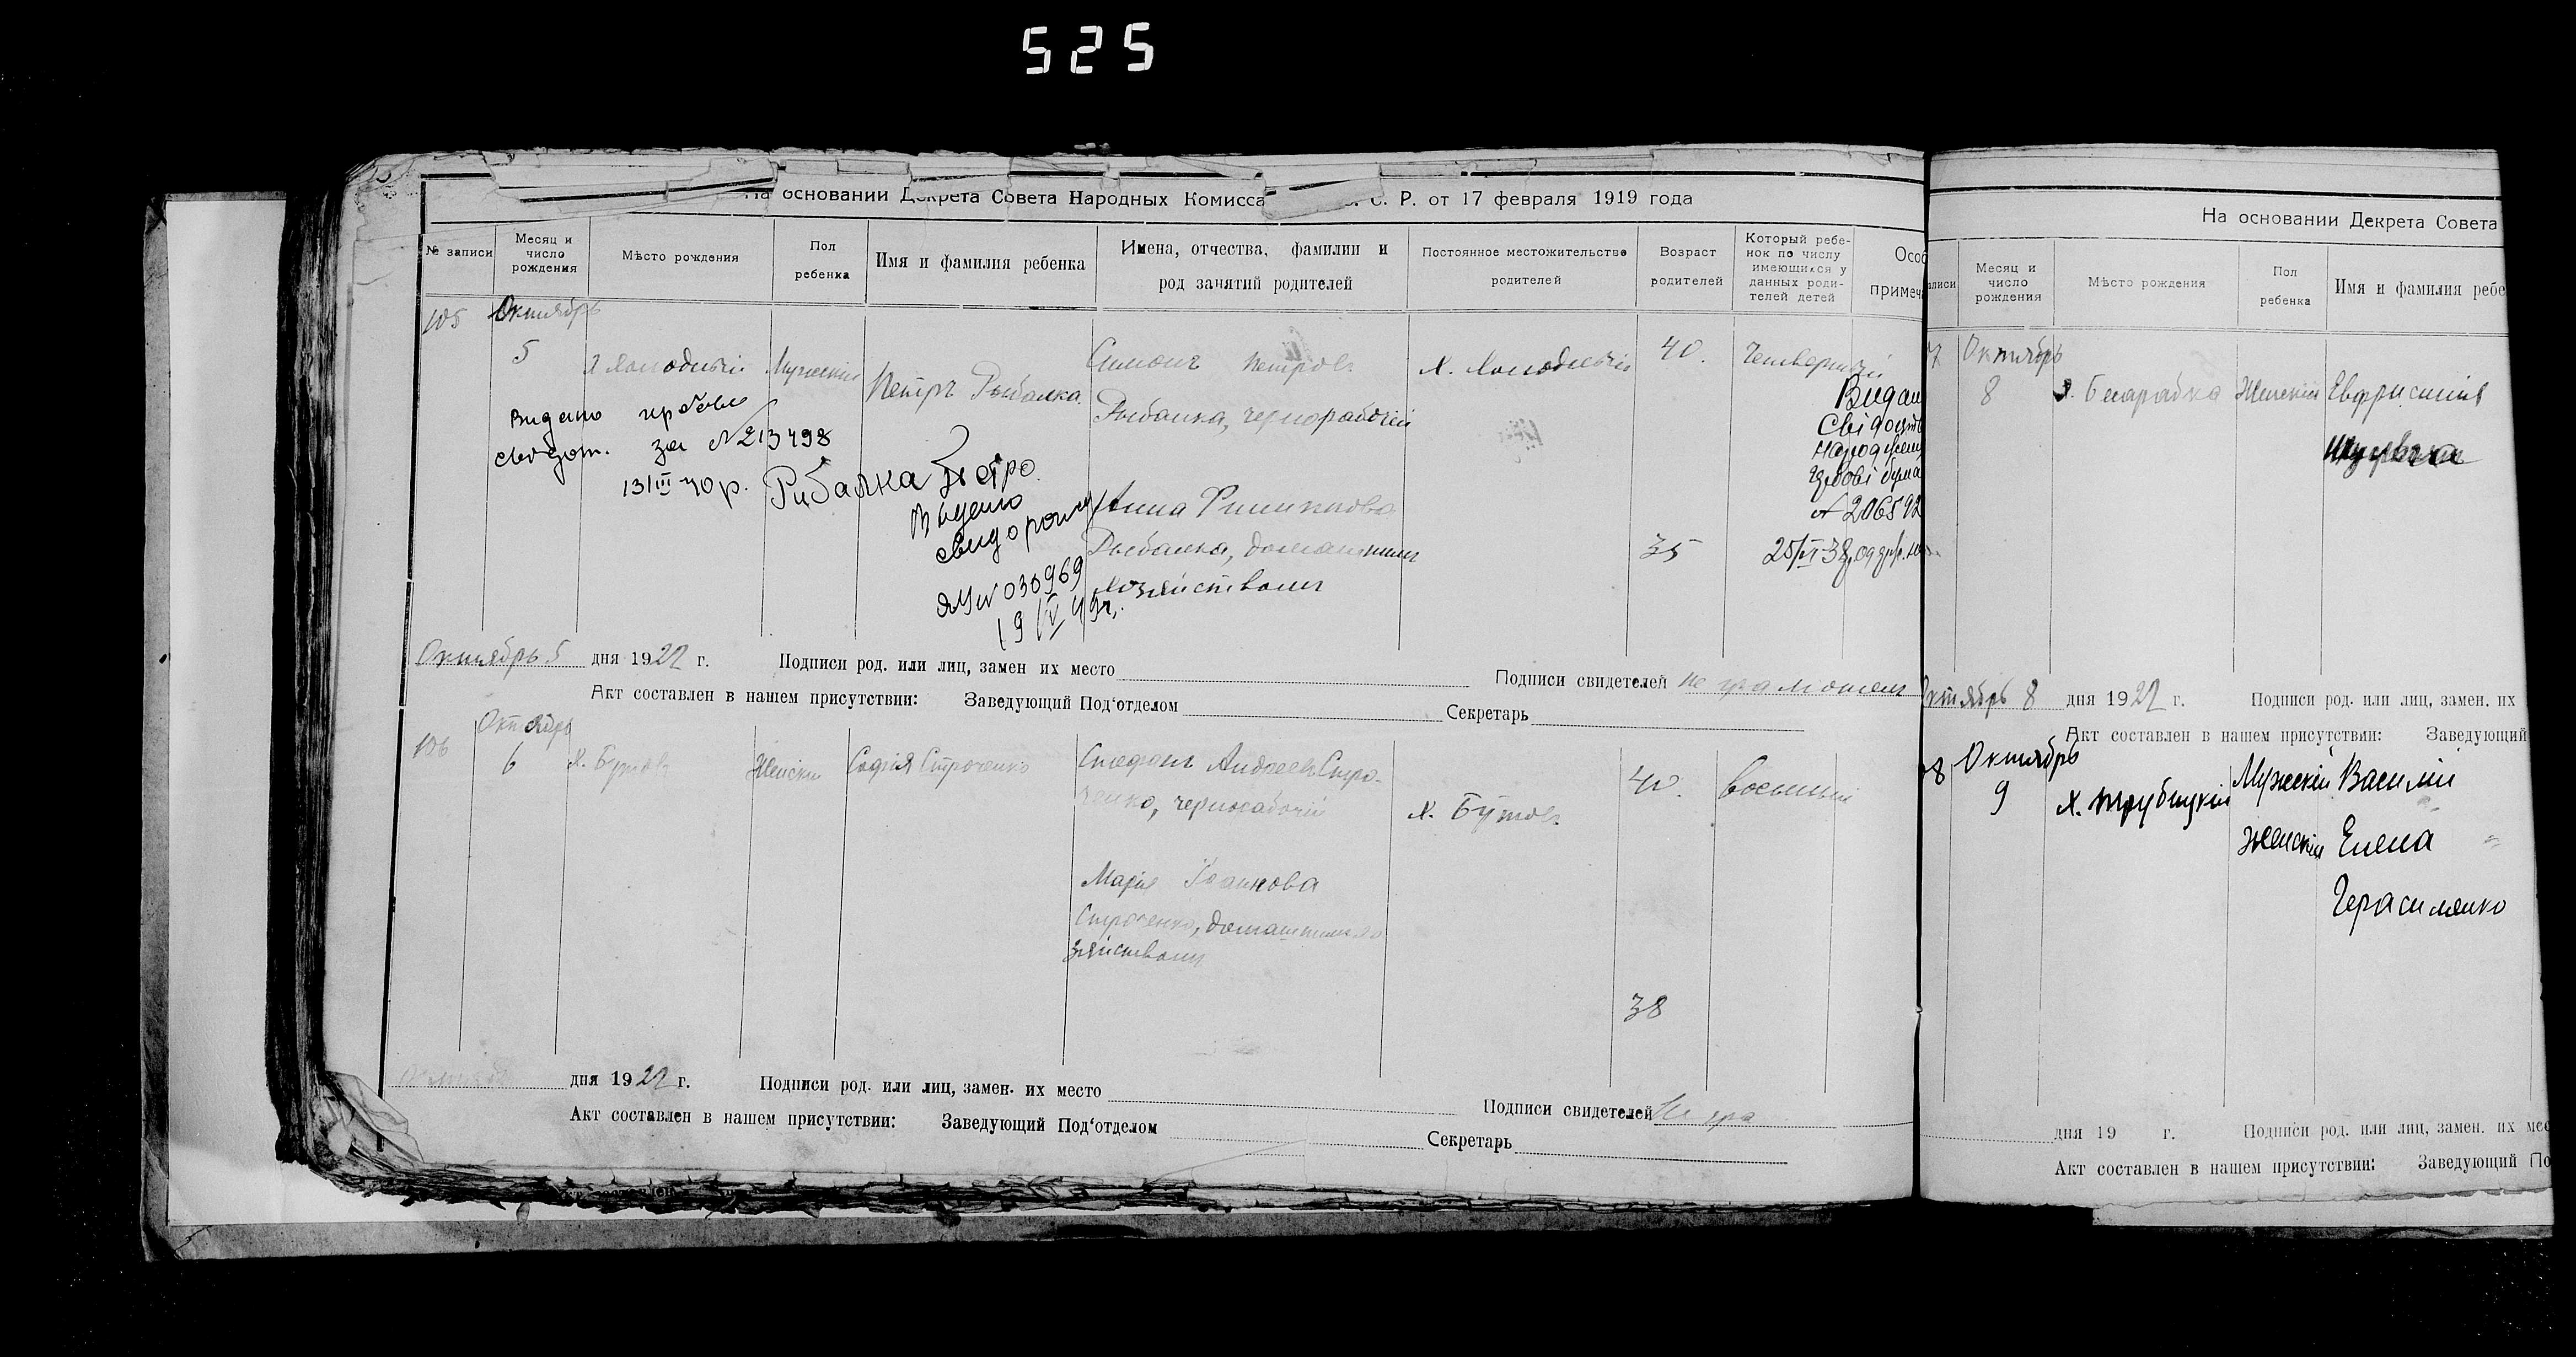 525
На основании Декрета Совета Народных Комисса С. Р. от 17 февраля 1919 года
№ записи
Месяц и число рождения
Мѣсто рождения
Пол ребенка
Имя и фамилия ребенка
Имена, отчества, фамилии и род занятий родителей
Постоянное местожительство родителей
Возраст родителей
Который ребе-
нок по числу
имеющихся у
данных роди-
телей детей
Особ
примеча
105
Октябрь
5
Х Холодный
Мужский
Петръ Рыбалка
Симонъ Петровъ
Рыбалка, чернорабочий
Х. Холодный
40.
Четвертый
Видано
свідот. за №213498
13/III 40р.
Рибалка Петро
Видано
ЯЩ № 030969
19/V 49г.
Анна
Рыбалка, домашним
хозяйством
35
Видан
Свідоцт
Народжен
№ 206592
25/VI 38
Октябрь 5 дня 1922 г.
Подписи род. или лиц, замен их место
Подписи свидетелей не грамотен
Акт составлен в нашем присутствии: Заведующий Под'отделом
Секретарь
106
Октябрь
6
Х. Бутовъ
Женский
Софія Строченко
Стефанъ Андреевъ Стро-
ченко, чернорабочий
Х. Бутовъ
40.
восьмый
Марія Иоаннова
Строченко, домашним хо
зяйством
38
дня 1922 г.
Подписи род. или лиц, замен. их место
Подписи свидетелей Не гра
Акт составлен в нашем присутствии: Заведующий Под'отделом
Секретарь
На основании Декрета Совета
аписи
Месяц и число рождения
Мѣсто рождения
Пол ребенка
Имя и фамилия ребе
7
Октябрь
8
Х. Бесарабка
Женский
Евфрисинія
Октябрь 8 дня 1922 г.
Подписи род. или лиц, замен. их
Акт составлен в нашем присутствии: Заведующий
8
Октябрь
9
Х. Трубицкий
Мужский Василий
Женский Елена
Герасименко
дня 19 г.
Подписи род. или лиц, замен. их мес
Акт составлен в нашем присутствии: Заведующий По